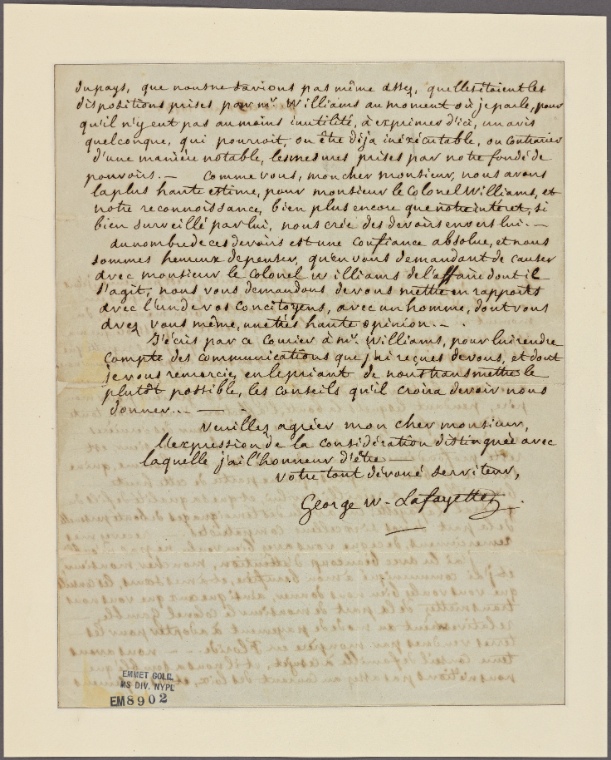 du pays, que nous ne savions pas même assez, quelles étaient les
dispositions prises par mr. Williams au moment où je parle, pour
qu'il n'y eut pas au moins inutilité, à exprimer d'ici, un avis
quelconque, qui pourroit, ou être déja inéxécutable, ou contrarier
d'une manière notable, les mesures prises par notre fondé de
pouvoirs. — Comme vous, mon cher monsieur, nous avons
la plus haute estime, pour monsieur le Colonel Williams, et
notre reconnoissance, bien plus encore que notre interet, si
bien surveillé par lui, nous crée des devoirs envers lui. —
du nombre de ces devoirs est une confiance absolue, et nous
sommes heureux de penser, qu'en vous demandant de causer
avec monsieur le Colonel Williams de l'affaire dont il
s'agit, nous vous demandons de vous mettre en rapports
avec l'un de vos concitoyens, avec un homme, dont vous
avez vous même, une très haute opinion. — .
J'écris par ce Courier à mr. Williams, pour lui rendre
compte des communications que j'ai reçues de vous, et dont
je vous remercie, en le priant de nous transmettre le
plutôt possible, les conseils qu'il croira devoir nous
donner. — — .
Veuillez agréer mon cher monsieur,
l'expression de la considération distinguée avec
laquelle j'ai l'honneur d'être —
Votre tout dévoué serviteur,
George W. Lafayette .
EMMET COLL.
MS DIV. NYPL
EM8902